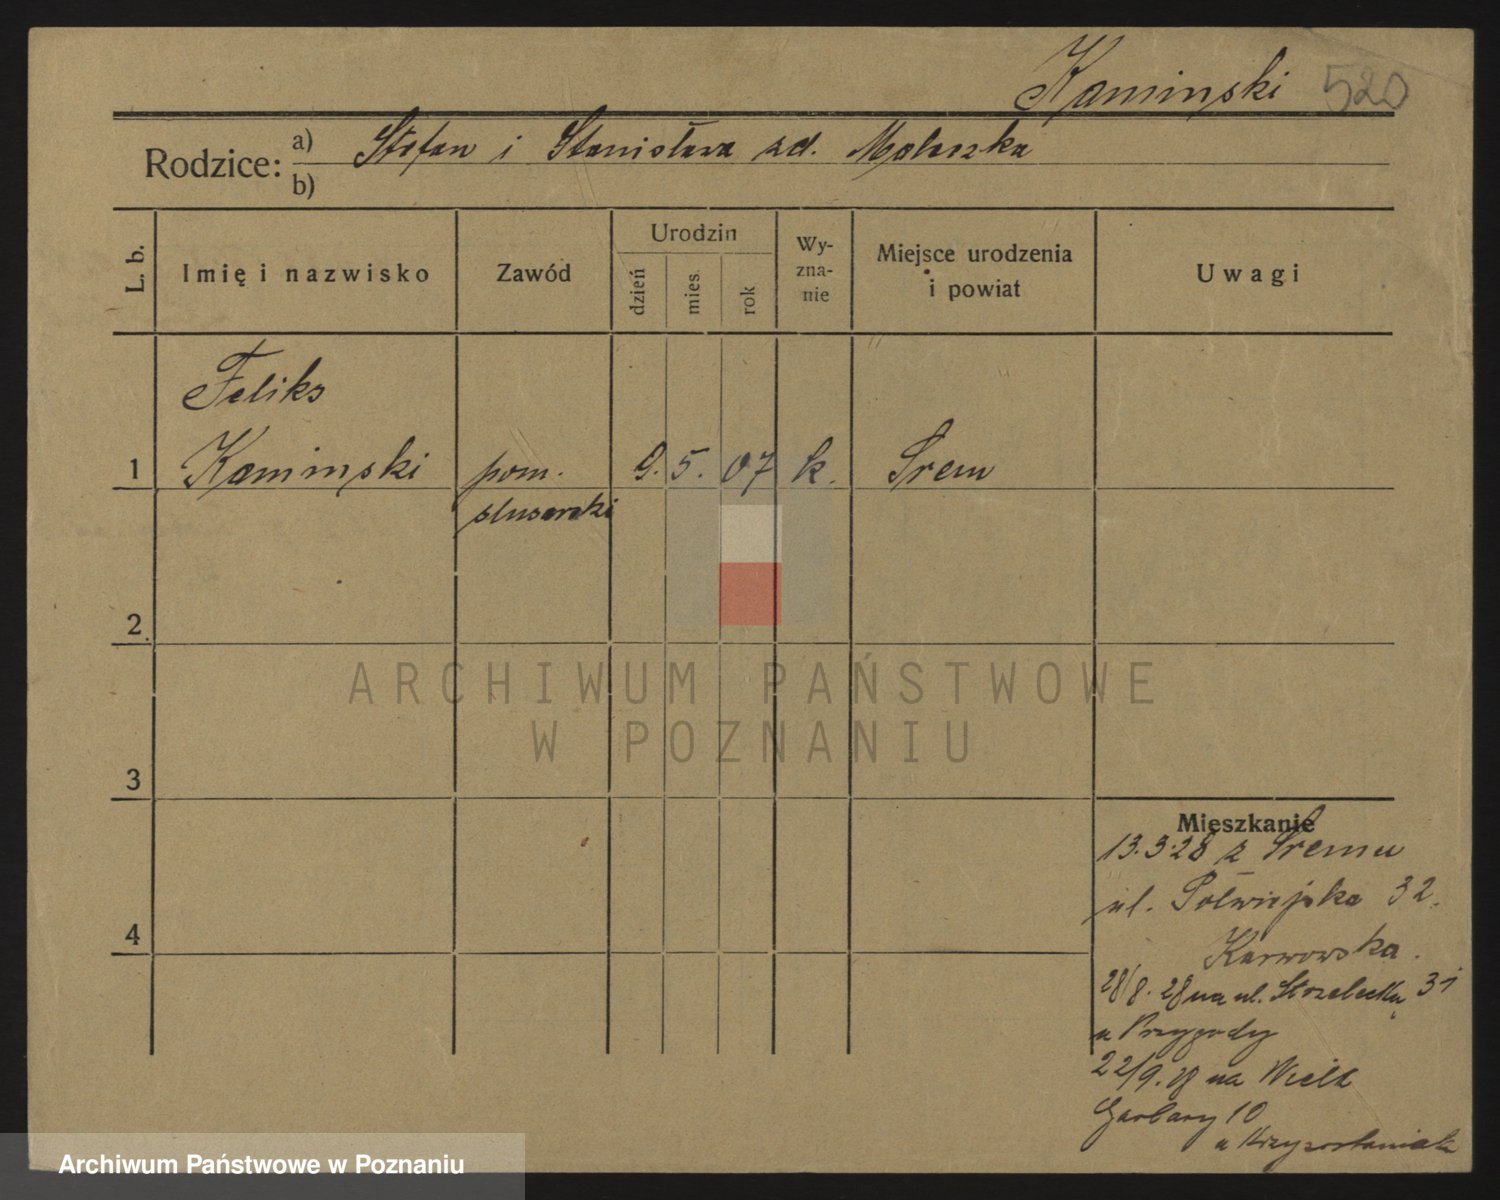 Kaminski 520
Rodzice: a) Stefan i Stanisława zd. Maluszka
b)
L. b.
Imię i nazwisko
Zawód
Urodzin
dzień
mies.
rok
Wy-
zna-
nie
Miejsce urodzenia
i powiat
Uwagi
Feliks
1 Kaminski pom. 9. 5. 07 k. Śrem
slusarski
2
3
4
Mieszkanie
13.3.28 z Śremu
ul. Półwiejska 32.
Karwowska.
28/8. 28 na ul. Strzelecką 31
u Przygody
22/9. 28 na Wielk
Garbary 10
u
ARCHIWUM PAŃSTWOWE
W POZNANIU
Archiwum Państwowe w Poznaniu